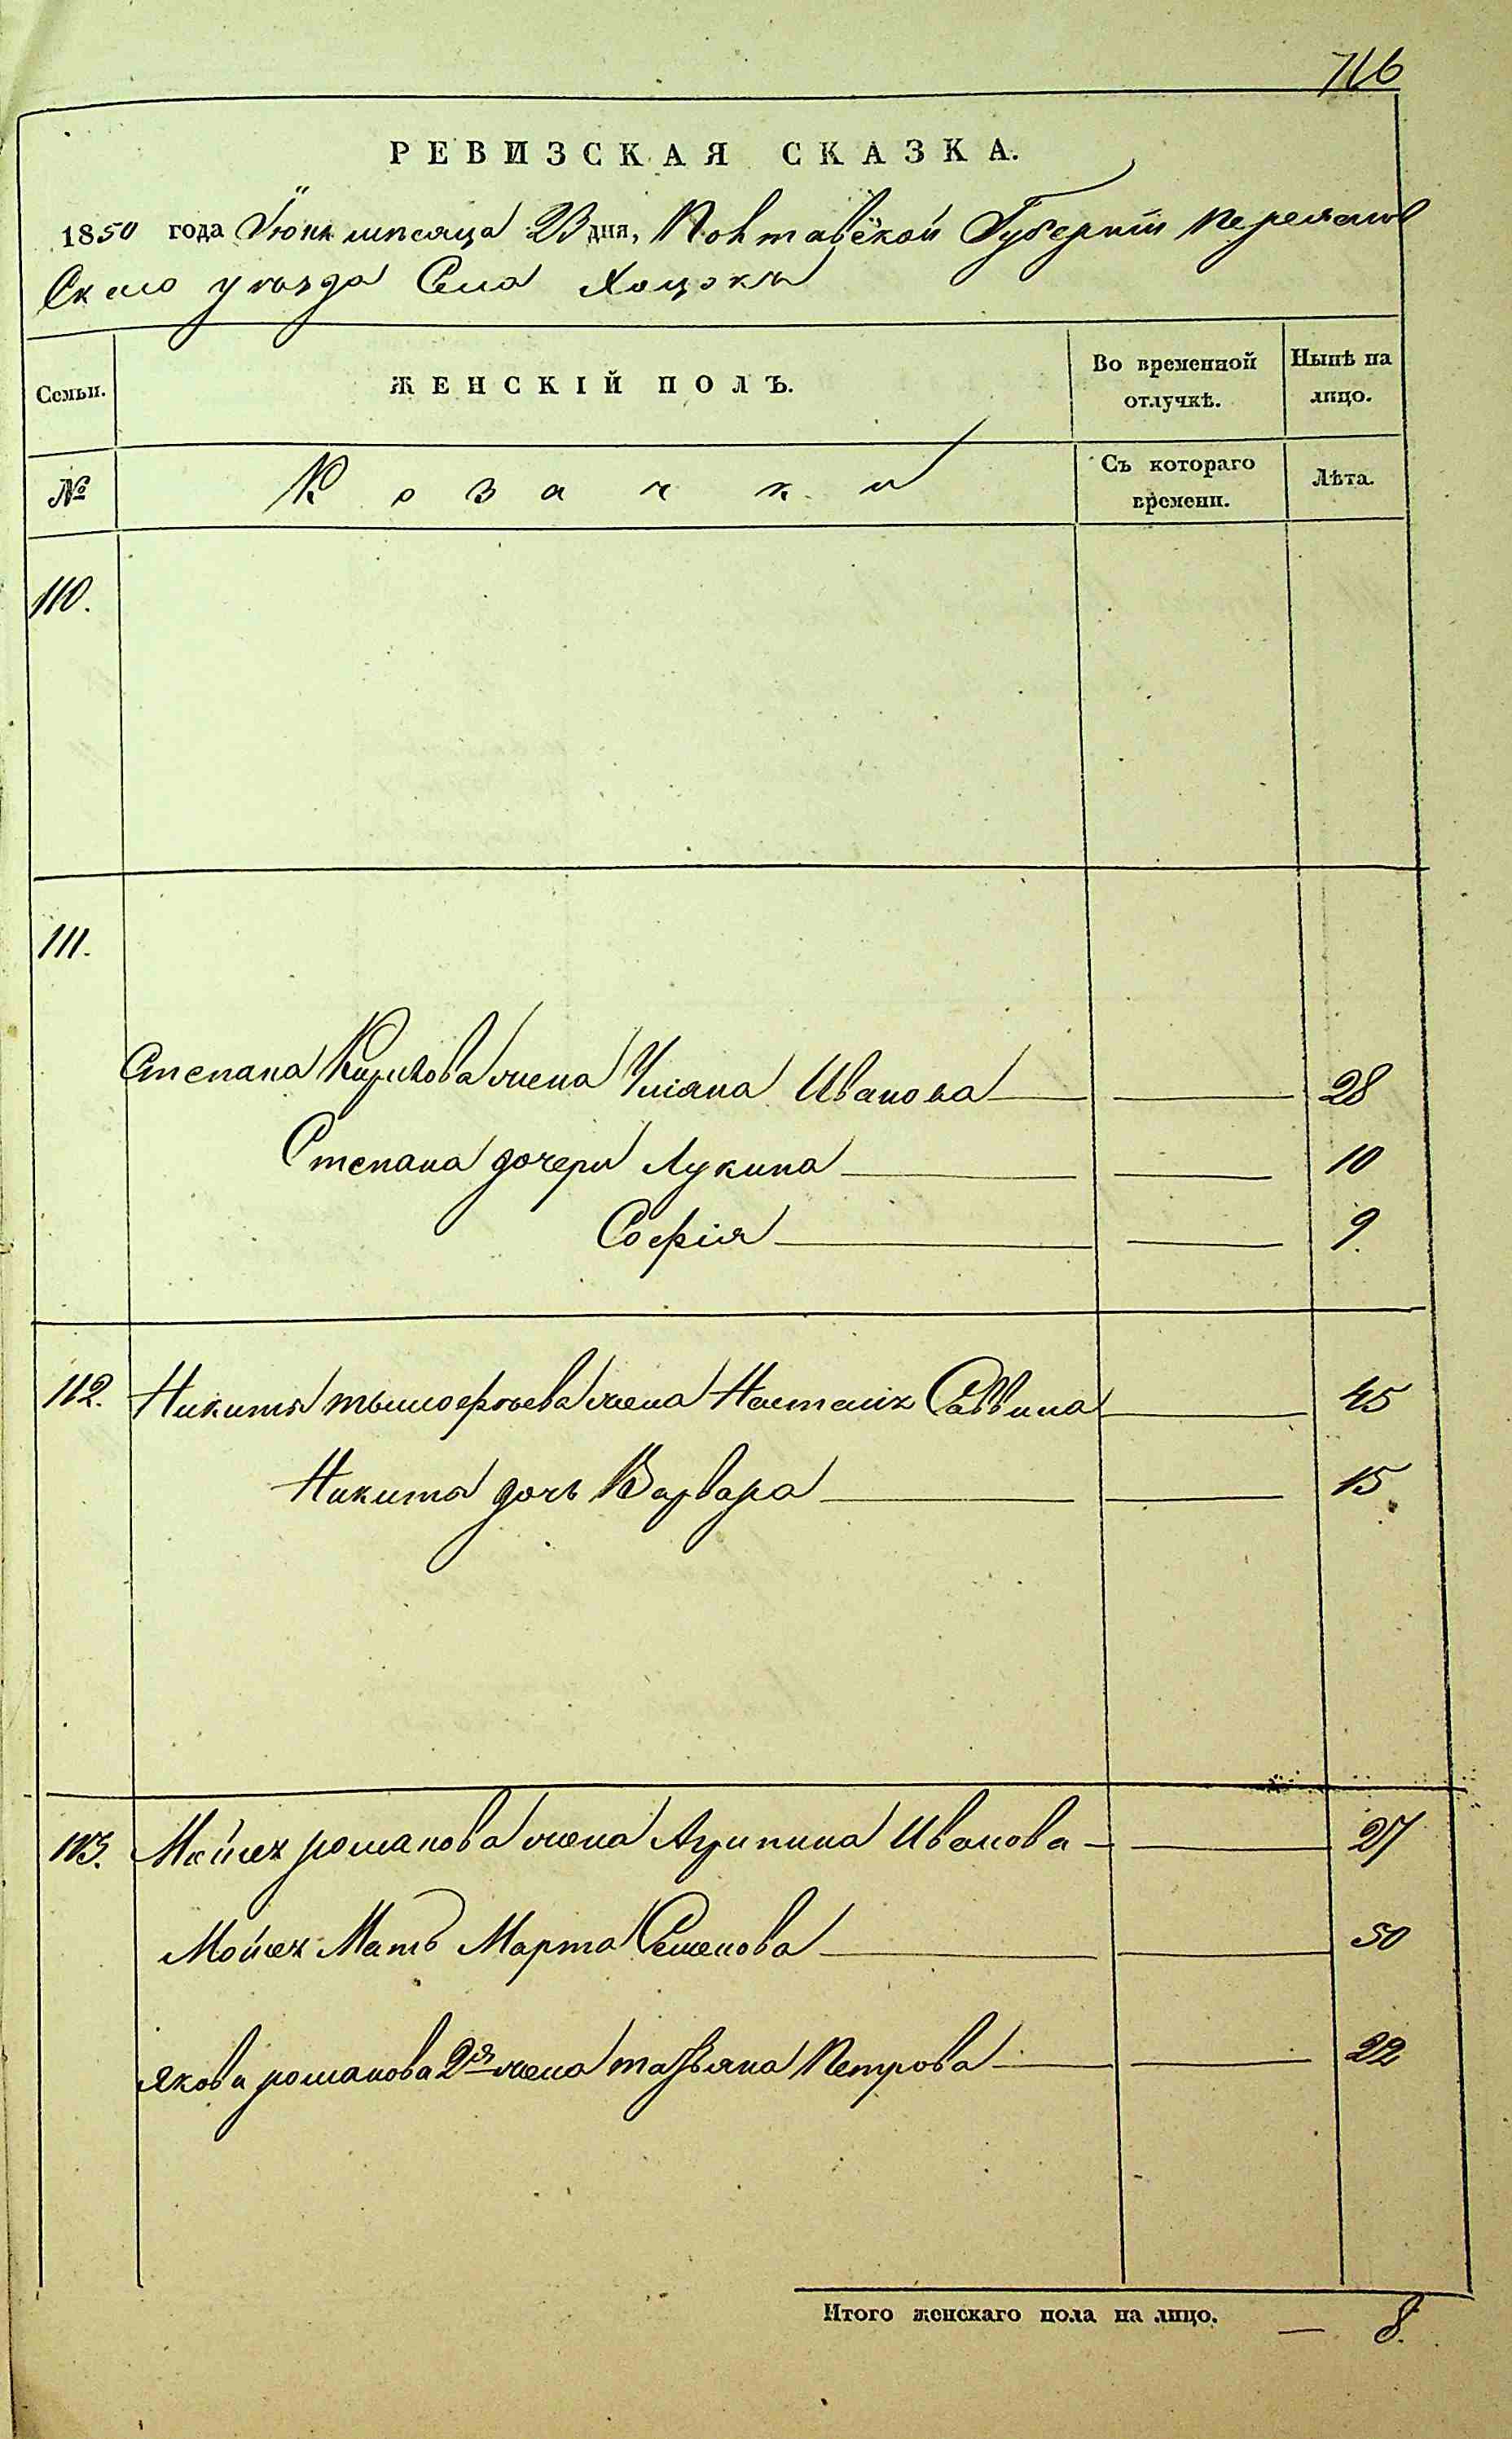 716
РЕВИЗСКАЯ СКАЗКА.
1850 года Іюня мѣсяца 23 дня, Полтавской Губерніи Переяслов
Скаго уѣзда Села Хоцокъ
Семьи. ЖЕНСКІЙ ПОЛЪ. Во временной отлучкѣ. Нынѣ на лицо.
№ Козачки Съ котораго времени. Лѣта.
110.
111.
Степана Кирилова жена Уліяна Иванова 28
Степана дочери Лукина 10
Софія 9
112. Никиты тымофѣева жена Настасія Саввина 45
Никиты дочь Варвара 15
113. Мойсея романова жена Агрипина Иванова 27
Мойсея Мать Марта Семенова 50
якова романова 2я жена татьяна Петрова 22
Итого женскаго пола на лицо. — 8.